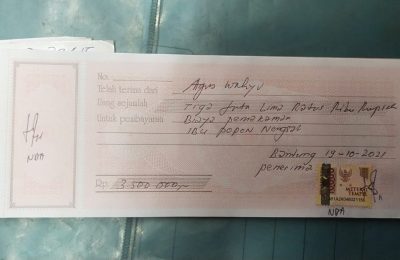 No.
Telah terima dari Agus Wahyu
Uang sejumlah Tiga Juta Lima Ratus Ribu Rupiah
Untuk pembayaran Biaya pemakaman
Ibu Popon
Bandung 19-10-2021
penerima
Rp. 3.500.000,-
METERAI
TEMPEL
NBA
NBA